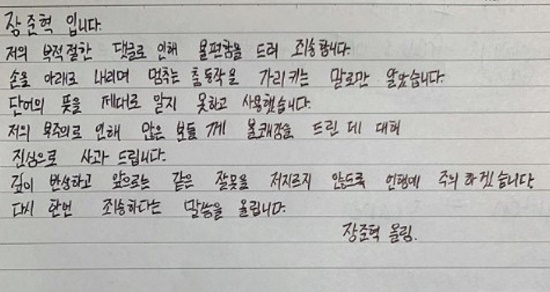 장준혁 입니다.
저의 부적절한 댓글로 인해 불편함을 드려 죄송합니다.
손을 아래로 내리며 멈추는 춤동작을 가리키는 말로만 알았습니다.
단어의 뜻을 제대로 알지 못하고 사용했습니다.
저의 부주의로 인해 많은 분들께 불쾌감을 드린 데 대해
진심으로 사과 드립니다.
깊이 반성하고 앞으로는 같은 잘못을 저지르지 않도록 언행에 주의하겠습니다.
다시 한번 죄송하다는 말씀을 올립니다.
장준혁 올림.